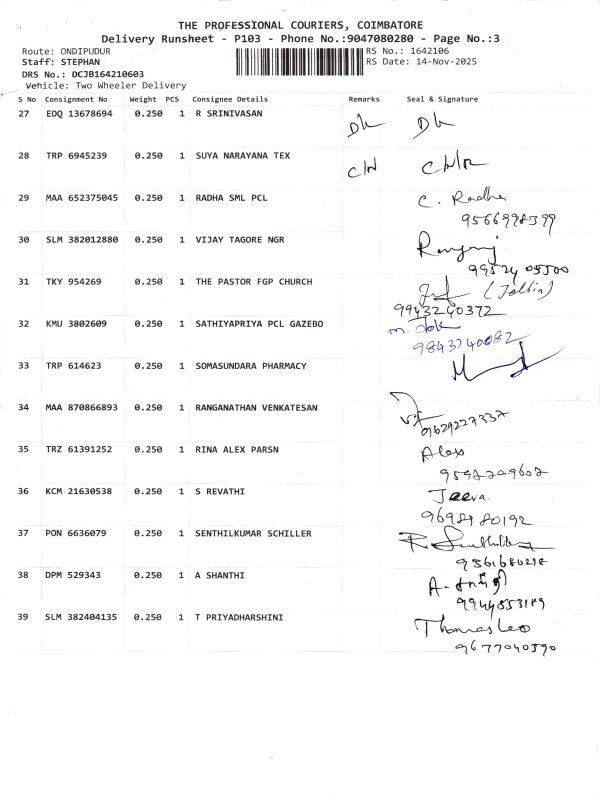 THE PROFESSIONAL COURIERS, COIMBATORE
Delivery Runsheet - P103 - Phone No.:9047080280 - Page No.:3
Route: ONDIPUDUR RS No.: 1642106
Staff: STEPHAN RS Date: 14-Nov-2025
DRS No.: DCJB164210603
Vehicle: Two Wheeler Delivery
S No Consignment No Weight PCS Consignee Details Remarks Seal & Signature
27 EDQ 13678694 0.250 1 R SRINIVASAN
28 TRP 6945239 0.250 1 SUYA NARAYANA TEX
29 MAA 652375045 0.250 1 RADHA SML PCL C. Radha
9566998399
30 SLM 382012880 0.250 1 VIJAY TAGORE NGR
31 TKY 954269 0.250 1 THE PASTOR FGP CHURCH
9943240372
32 KMU 3802609 0.250 1 SATHIYAPRIYA PCL GAZEBO
9843740082
33 TRP 614623 0.250 1 SOMASUNDARA PHARMACY
34 MAA 870866893 0.250 1 RANGANATHAN VENKATESAN
9629227337
35 TRZ 61391252 0.250 1 RINA ALEX PARSN Alex
36 KCM 21630538 0.250 1 S REVATHI Jeeva.
37 PON 6636079 0.250 1 SENTHILKUMAR SCHILLER
38 DPM 529343 0.250 1 A SHANTHI
39 SLM 382404135 0.250 1 T PRIYADHARSHINI Thomas Leo
9677040390